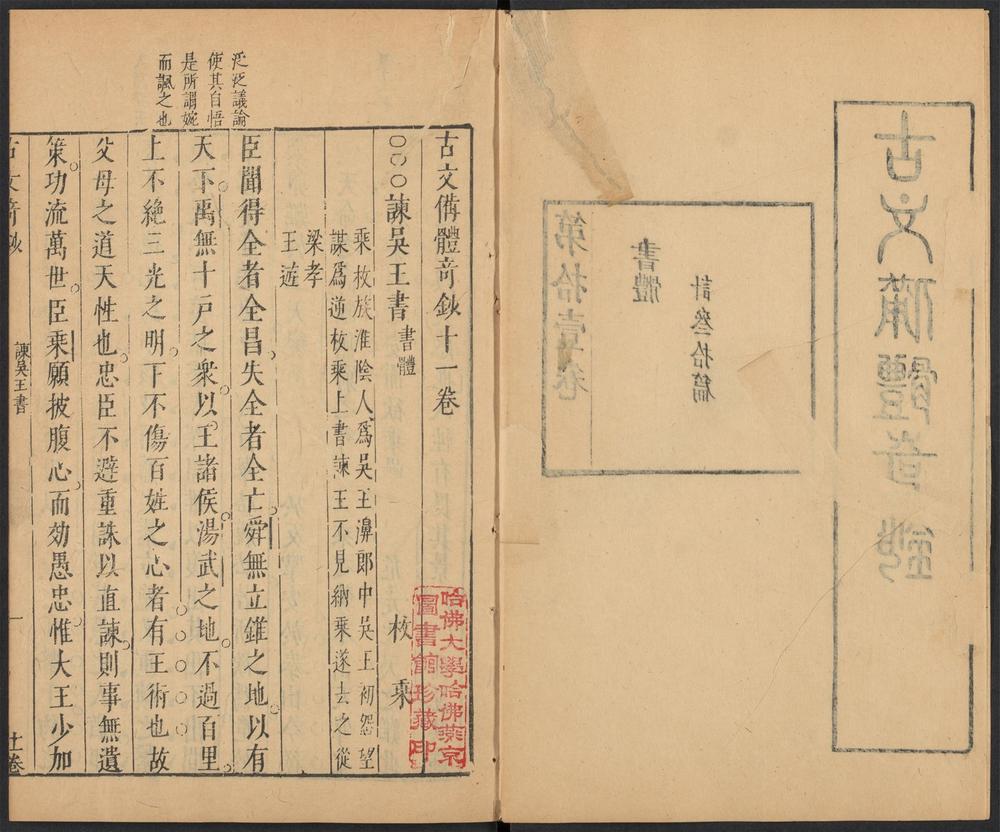 古文備體奇鈔
第拾壹卷
書體
計叄拾篇
泛泛議論
使其自悟
是所謂婉
而諷之也
古文備體奇鈔十一卷
○○○諫吳王書 書體 枚乘
乘枚族淮陰人爲吳王濞郎中吳王初怨望
謀爲逆枚乘上書諫王不見納乘遂去之從
梁孝
王遊
臣聞得全者全昌失全者全亡舜無立錐之地以有
天下禹無十戶之衆以王諸侯湯武之地不過百里
上不絶三光之明下不傷百姓之心者有王術也故
父母之道天性也忠臣不避重誅以直諫則事無遺
策功流萬世臣乘願披腹心而効愚忠惟大王少加
古文奇鈔 諫吳王書 一 十一卷
哈佛大學哈佛燕京
圖書館珍藏印